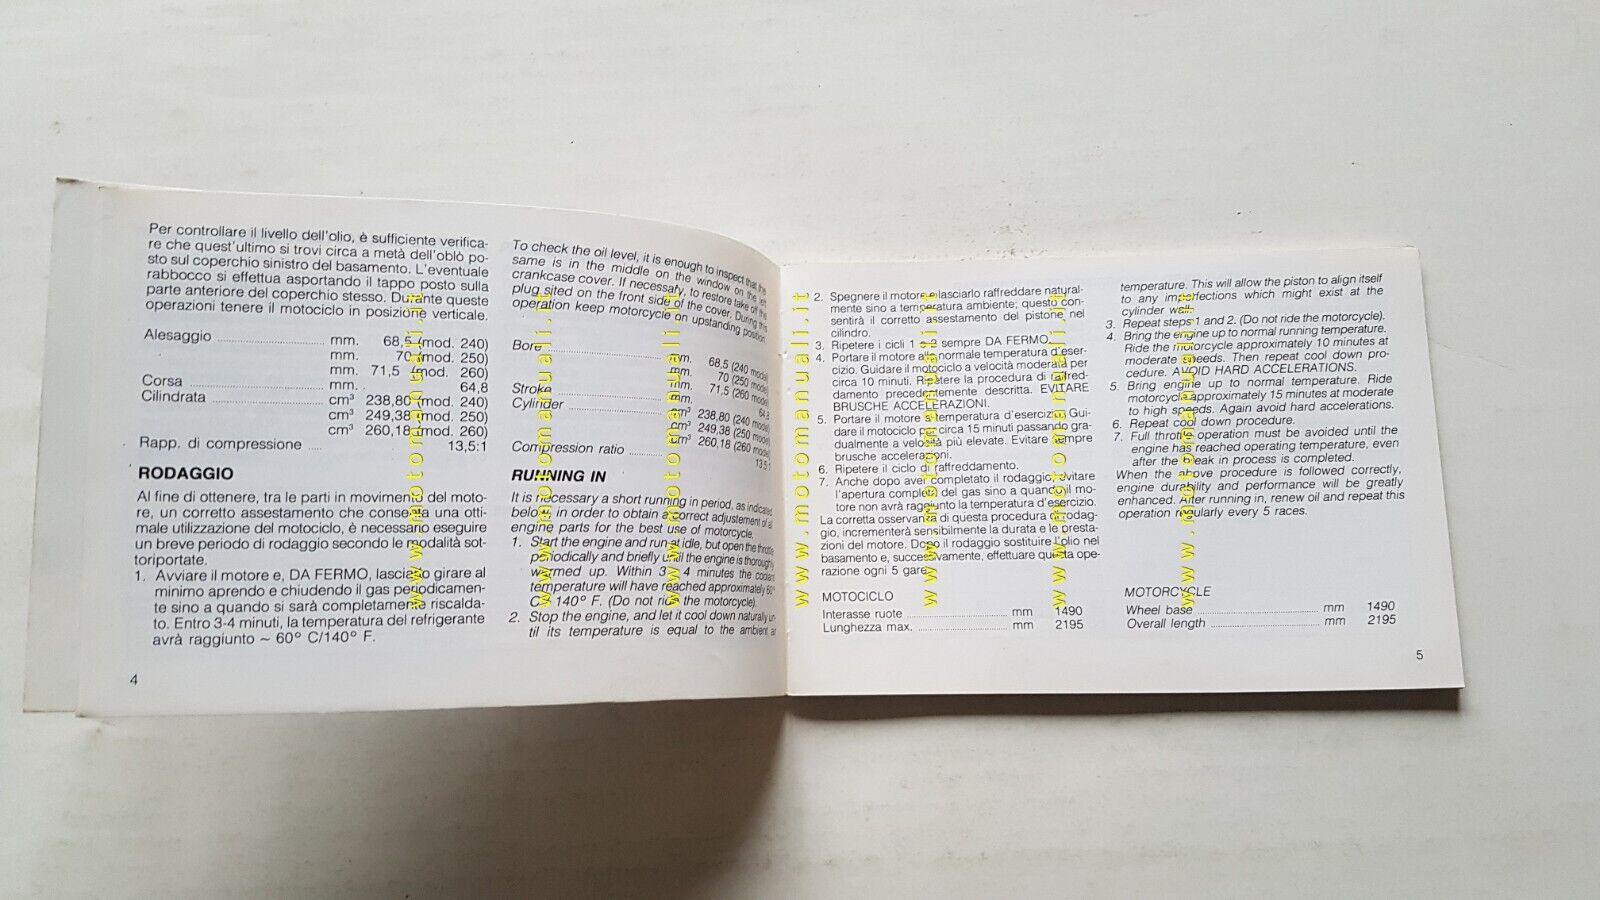 Per controllare il livello dell'olio, è sufficiente verifica-
re che quest'ultimo si trovi circa a metà dell'oblò po-
sto sul coperchio sinistro del basamento. L'eventuale
rabbocco si effettua asportando il tappo posto sulla
parte anteriore del coperchio stesso. Durante queste
operazioni tenere il motociclo in posizione verticale.
Alesaggio ........ mm. 68,5 (mod. 240)
mm. 70 (mod. 250)
mm. 71,5 (mod. 260)
Corsa ........ mm. 64,8
Cilindrata ........ cm³ 238,80 (mod. 240)
cm³ 249,38 (mod. 250)
cm³ 260,18 (mod. 260)
Rapp. di compressione .... 13,5:1
RODAGGIO
Al fine di ottenere, tra le parti in movimento del moto-
re, un corretto assestamento che consenta una otti-
male utilizzazione del motociclo, è necessario eseguire
un breve periodo di rodaggio secondo le modalità sot-
toriportate.
1. Avviare il motore e, DA FERMO, lasciarlo girare al
minimo aprendo e chiudendo il gas periodicamen-
te sino a quando si sarà completamente riscalda-
to. Entro 3-4 minuti, la temperatura del refrigerante
avrà raggiunto ~ 60° C/140° F.
4
To check the oil level, it is enough to inspect that the
same is in the middle on the window on the left
crankcase cover. If necessary, to restore take off the
plug sited on the front side of the cover. During this
operation keep motorcycle on upstanding position.
Bore ........ mm. 68,5 (240 model)
mm. 70 (250 model)
mm. 71,5 (260 model)
Stroke ........ mm. 64,8
Cylinder ........ cm³ 238,80 (240 model)
cm³ 249,38 (250 model)
cm³ 260,18 (260 model)
Compression ratio ........ 13,5:1
RUNNING IN
It is necessary a short running in period, as indicated
below, in order to obtain a correct adjustement of all
engine parts for the best use of motorcycle.
1. Start the engine and run at idle, but open the throttle
periodically and briefly until the engine is thoroughly
warmed up. Within 3 - 4 minutes the coolant
temperature will have reached approximately 60°
C - 140° F. (Do not ride the motorcycle).
2. Stop the engine, and let it cool down naturally un-
til its temperature is equal to the ambient air
2. Spegnere il motore e lasciarlo raffreddare natural-
mente sino a temperatura ambiente; questo con-
sentirà il corretto assestamento del pistone nel
cilindro.
3. Ripetere i cicli 1 e 2 sempre DA FERMO.
4. Portare il motore alla normale temperatura d'eser-
cizio. Guidare il motociclo a velocità moderata per
circa 10 minuti. Ripetere la procedura di raffred-
damento precedentemente descritta. EVITARE
BRUSCHE ACCELERAZIONI.
5. Portare il motore a temperatura d'esercizio. Gui-
dare il motociclo per circa 15 minuti passando gra-
dualmente a velocità più elevate. Evitare sempre
brusche accelerazioni.
6. Ripetere il ciclo di raffreddamento.
7. Anche dopo aver completato il rodaggio, evitare
l'apertura completa del gas sino a quando il mo-
tore non avrà raggiunto la temperatura d'esercizio.
La corretta osservanza di questa procedura di rodag-
gio, incrementerà sensibilmente la durata e le presta-
zioni del motore. Dopo il rodaggio sostituire l'olio nel
basamento e, successivamente, effettuare questa ope-
razione ogni 5 gare.
MOTOCICLO
Interasse ruote ........ mm 1490
Lunghezza max. ........ mm 2195
temperature. This will allow the piston to align itself
to any imperfections which might exist at the
cylinder wall.
3. Repeat steps 1 and 2. (Do not ride the motorcycle).
4. Bring the engine up to normal running temperature.
Ride the motorcycle approximately 10 minutes at
moderate speeds. Then repeat cool down pro-
cedure. AVOID HARD ACCELERATIONS.
5. Bring engine up to normal temperature. Ride
motorcycle approximately 15 minutes at moderate
to high speeds. Again avoid hard accelerations.
6. Repeat cool down procedure.
7. Full throttle operation must be avoided until the
engine has reached operating temperature, even
after the break in process is completed.
When the above procedure is followed correctly,
engine durability and performance will be greatly
enhanced. After running in, renew oil and repeat this
operation regularly every 5 races.
MOTORCYCLE
Wheel base ........ mm 1490
Overall length ........ mm 2195
5
www.motomanuali.it
www.motomanuali.it
www.motomanuali.it
www.motomanuali.it
www.motomanuali.it
www.motomanuali.it
www.motomanuali.it